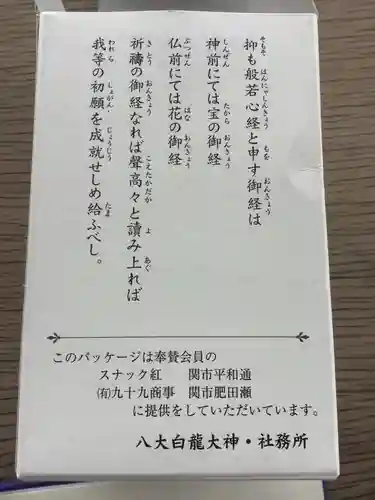 抑も般若心経と申す御経は
神前にては宝の御経
仏前にては花の御経
祈禱の御経なれば聲高々と讀み上れば
我等の初願を成就せしめ給ふべし。
このパッケージは奉賛会員の
スナック紅　関市平和通
㈲九十九商事　関市肥田瀬
に提供をしていただいています。
八大白龍大神・社務所